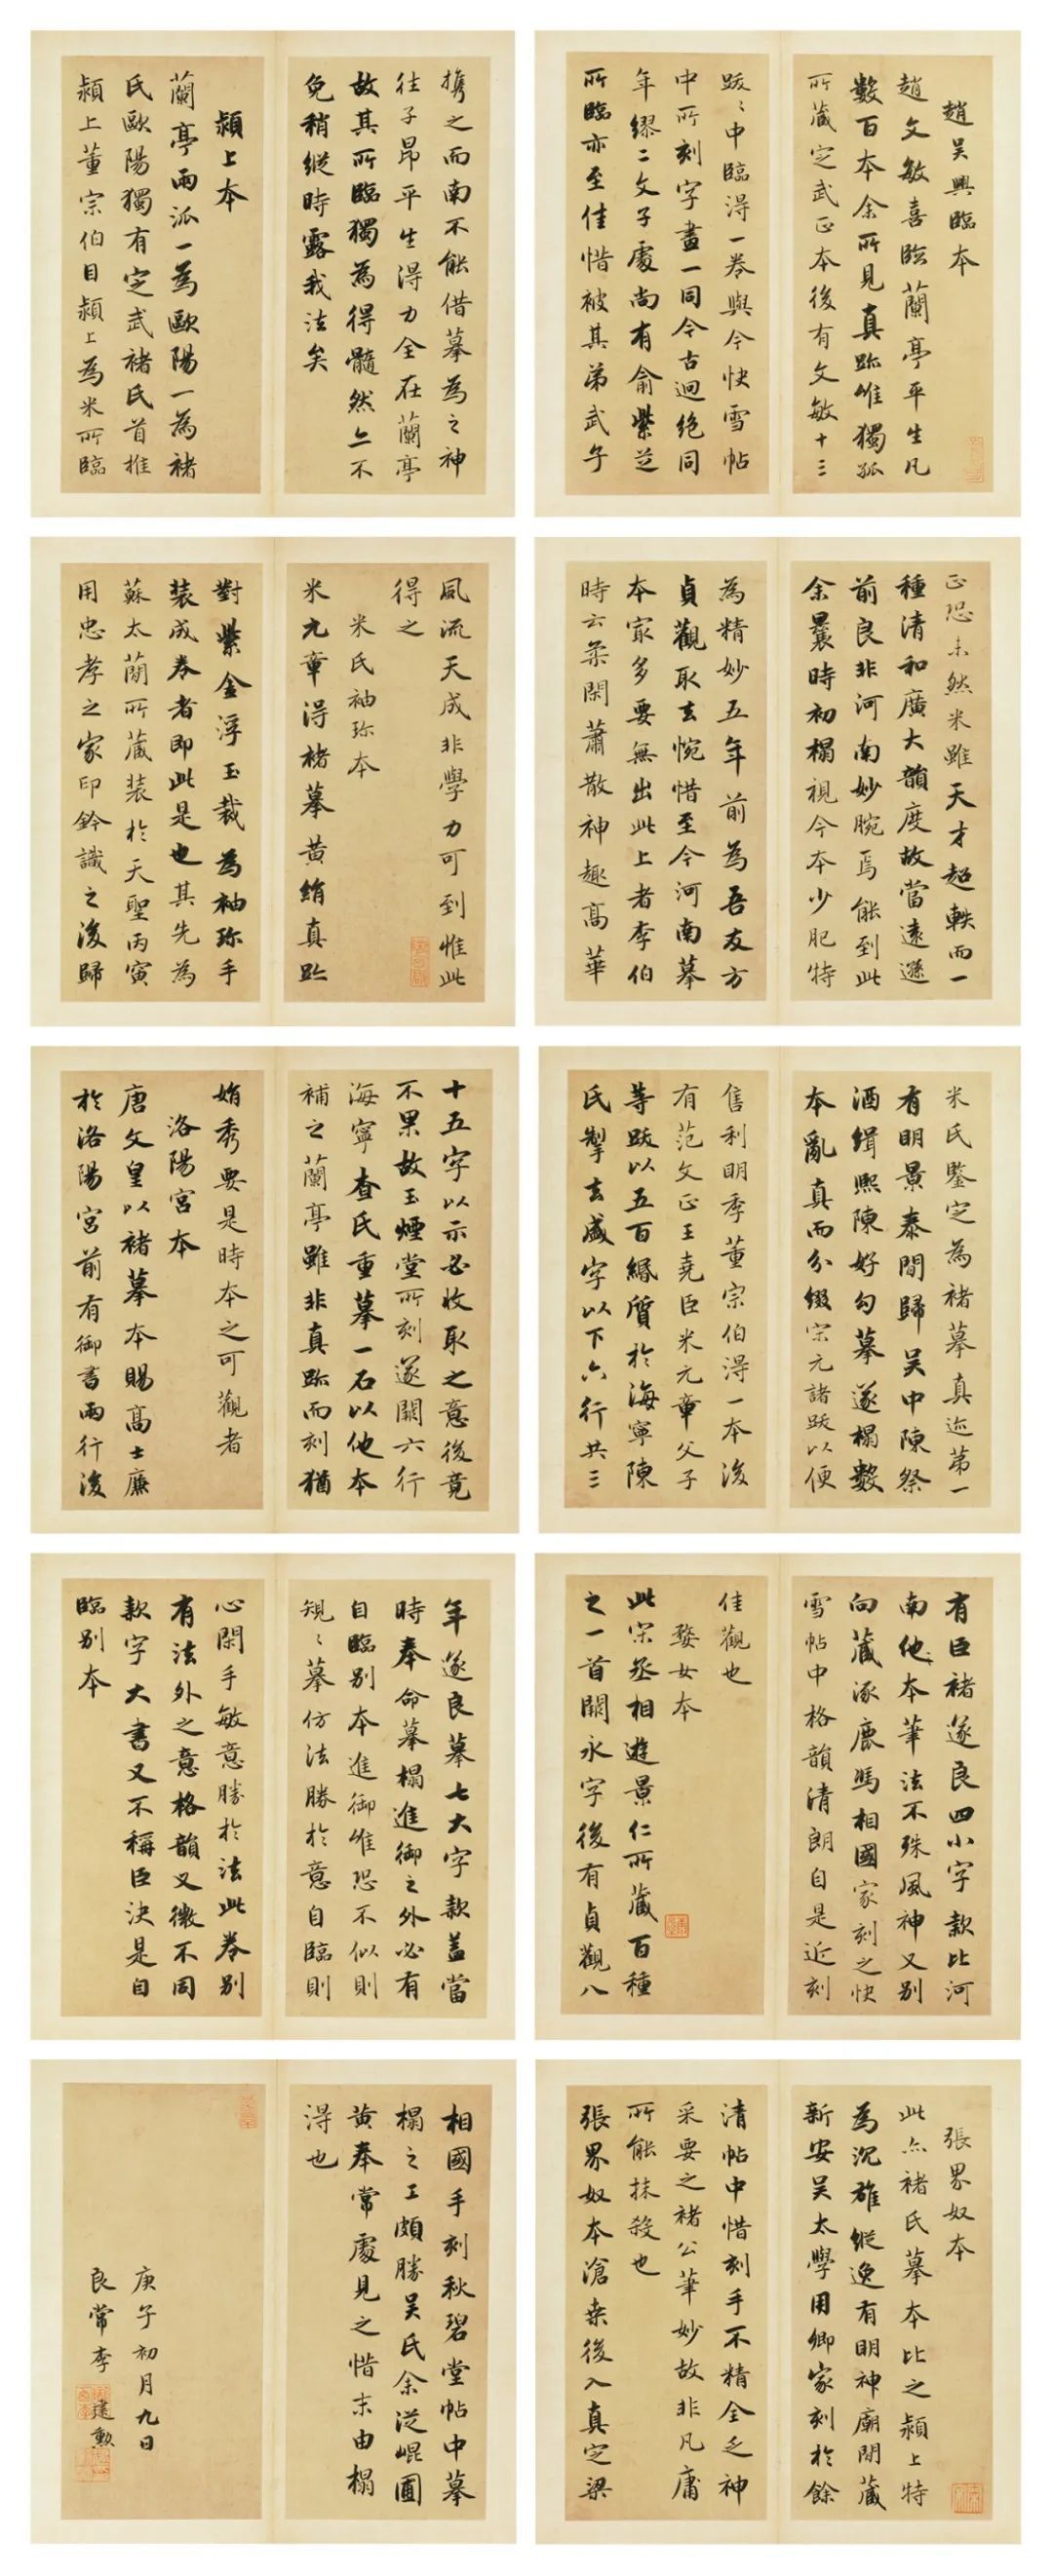 趙吳興臨本
趙文敏喜臨蘭亭平生凡
數百本余所見真跡惟獨孤
所藏定武正本後有文敏十三
跋〻中臨得一卷與今快雪帖
中所刻字畫一同今古迥絕同
年繆二文子處尚有俞紫芝
所臨亦至佳惜被其弟武子
攜之而南不能借摹為之神
往子昂平生得力全在蘭亭
故其所臨獨為得髓然亦不
免稍縱時露我法矣
潁上本
蘭亭兩派一為歐陽一為褚
氏歐陽獨有定武褚氏首推
潁上董宗伯目潁上為米所臨
正恐未然米雖天才超軼而一
種清和廣大韻度故當遠遜
前良非河南妙腕焉能到此
余曩時初榻視今本少肥特
為精妙五年前為吾友方
貞觀取去惋惜至今河南摹
本最多要無出此上者李伯
時云柔閑蕭散神趣高華
風流天成非學力可到惟此
得之
米氏袖珍本
米元章得褚摹黃絹真跡
對紫金浮玉裁為袖珍手
裝成卷者即此是也其先為
蘇太簡所藏裝於天聖丙寅
用忠孝之家印鈐識之後歸
米氏鑒定為褚摹真迹第一
有明景泰間歸吳中陳祭
酒緝熙陳好勾摹遂榻數
本亂真而分綴宋元諸跋以便
售利明季董宗伯得一本後
有范文正王堯臣米元章父子
等跋以五百緡質於海寧陳
氏掣去盛字以下六行共三
十五字以示必收取之意後竟
不果故玉煙堂所刻遂闕六行
海寧查氏重摹一石以他本
補之蘭亭雖非真跡而刻猶
娟秀要是時本之可觀者
洛陽宮本
唐文皇以褚摹本賜高士廉
於洛陽宮前有御書兩行後
有臣褚遂良四小字款比河
南他本筆法不殊風神又別
向藏涿鹿馮相國家刻之快
雪帖中格韻清朗自是近刻
佳觀也
婺女本
此宋丞相遊景仁所藏百種
之一首闕永字後有貞觀八
年遂良摹七大字款蓋當
時奉命摹榻進御之外必有
自臨別本進御惟恐不似則
規〻摹仿法勝於意自臨則
心閑手敏意勝於法此卷別
有法外之意格韻又微不同
款字大書又不稱臣決是自
臨別本
張界奴本
此亦褚氏摹本比之潁上特
為沉雄縱逸有明神廟間藏
新安吳太學用卿家刻於餘
清帖中惜刻手不精全乏神
采要之褚公筆妙故非凡庸
所能抹殺也
張界奴本滄桑後入真定梁
相國手刻秋碧堂帖中摹
榻之工頗勝吳氏余從崐圃
黃奉常處見之惜未由榻
得也
庚子初月九日
良常李建勳